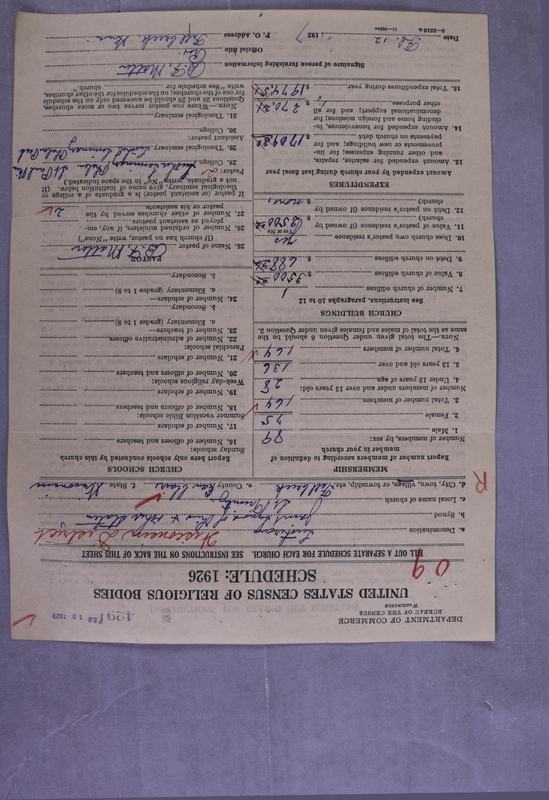 DEPARTMENT OF COMMERCE
BUREAU OF THE CENSUS
WASHINGTON
FEB 19 1927
UNITED STATES CENSUS OF RELIGIOUS BODIES
SCHEDULE: 1926
09
FILL OUT A SEPARATE SCHEDULE FOR EACH CHURCH. SEE INSTRUCTIONS ON THE BACK OF THIS SHEET
a. Denomination Lutheran
b. Synod Joint Synod of Ohio & other States
Wisconsin District
c. Local name of church
d. City, town, village, or township, etc. Fall Creek
e. County Eau Claire
f. State Wisconsin
R
MEMBERSHIP
Report number of members according to definition of member in your church
Number of members, by sex:
1. Male 89
2. Female 75
3. Total number of members 164
Number of members under and over 13 years old:
4. Under 13 years of age 28
5. 13 years old and over 136
6. Total number of members 164
NOTE.—The total given under Question 6 should be the same as the total of males and females given under question 3.
CHURCH BUILDINGS
See instructions, paragraphs 10 to 12
7. Number of church edifices 1
8. Value of church edifices $
9. Debt on church edifices $
10. Does church own pastor's residence yes
(Yes or No)
11. Value of pastor's residence (if owned by church) $
12. Debt on pastor's residence (if owned by church) $ none
EXPENDITURES
Amount expended by your church during last fiscal year
13. Amount expended for salaries, repairs, and other running expenses; for improvements or new buildings; and for payments on church debt
14. Amount expended for benevolences, including home and foreign missions; for denominational support; and for all other purposes
15. Total expenditures during year
CHURCH SCHOOLS
Report here only schools conducted by this church
Sunday schools:
16. Number of officers and teachers
17. Number of scholars
Summer vacation Bible schools:
18. Number of officers and teachers
19. Number of scholars
Week-day religious schools:
20. Number of officers and teachers
21. Number of scholars
Parochial schools:
22. Number of administrative officers
23. Number of teachers—
a. Elementary (grades 1 to 8)
b. Secondary
24. Number of scholars—
a. Elementary (grades 1 to 8)
b. Secondary
PASTOR
25. Name of pastor
(If church has no pastor, write "None")
26. Number of ordained ministers, if any, employed as assistant pastors
27. Number of other churches served by the pastor or his assistants 2
If pastor (or assistant pastor) is a graduate of a college or theological seminary, give name of institution below. (If not a graduate, write "No" in the space indicated.)
Pastor:
28. College
29. Theological seminary
Assistant pastor:
30. College
31. Theological seminary
NOTE.—Where one pastor serves two or more churches, Questions 25 and 29 should be answered only on the schedule for one of the churches; on the schedules for the other churches, write "See schedule for church."
Signature of person furnishing information
Official title
P. O. Address Fall Creek, Wis.
Date Feb. 12, 1927